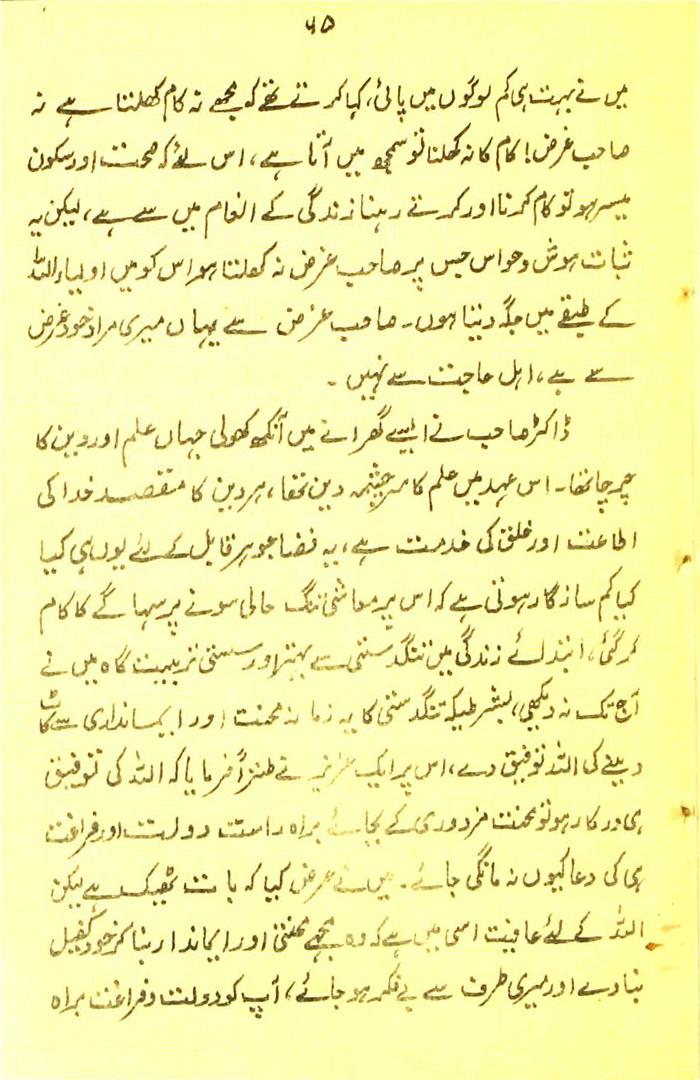 ۶۵
میں نے بہت ہی کم لوگوں میں پائی، کہا کرتے تھے کہ مجھے نہ کام کھلتا ہے نہ
صاحب غرض! کام کا نہ کھلنا تو سمجھ میں آتا ہے، اس لئے کہ صحت اور سکون
میسر ہو تو کام کرنا اور کرتے رہنا زندگی کے انعام میں سے ہے، لیکن یہ
ثبات ہوش و حواس جس پر صاحب غرض نہ کھلتا ہو اس کو میں اولیاء اللہ
کے طبقے میں جگہ دیتا ہوں۔ صاحب غرض سے یہاں میری مراد خود غرض
سے ہے، اہل حاجت سے نہیں۔
ڈاکٹر صاحب نے ایسے گھرانے میں آنکھ کھولی جہاں علم اور دین کا
چرچا تھا۔ اس عہد میں علم کا سرچشمہ دین تھا، ہر دین کا مقصد خدا کی
اطاعت اور خلق کی خدمت ہے، یہ فضا جوہر قابل کے لئے یوں ہی کیا
کیا کم سازگار ہوتی ہے کہ اس پر معاشی تنگ حالی سونے پر سہاگے کا کام
کر گئی، ابتدائے زندگی میں تنگدستی سے بہتر اور سستی تربیت گاہ میں نے
آج تک نہ دیکھی، بشرطیکہ تنگدستی کا یہ زمانہ محنت اور ایمانداری سے کاٹ
دینے کی اللہ توفیق دے، اس پر ایک عزیز نے طنزاً فرمایا کہ اللہ کی توفیق
ہی درکار ہو تو محنت مزدوری کے بجائے براہ راست دولت اور فراغت
ہی کی دعا کیوں نہ مانگی جائے۔ میں نے عرض کیا کہ بات ٹھیک ہے لیکن
اللہ کے لئے عافیت اسی میں ہے کہ وہ مجھے محنتی اور ایماندار بنا کر خود کفیل
بنادے اور میری طرف سے بے فکر ہو جائے، آپ کو دولت و فراغت براہ